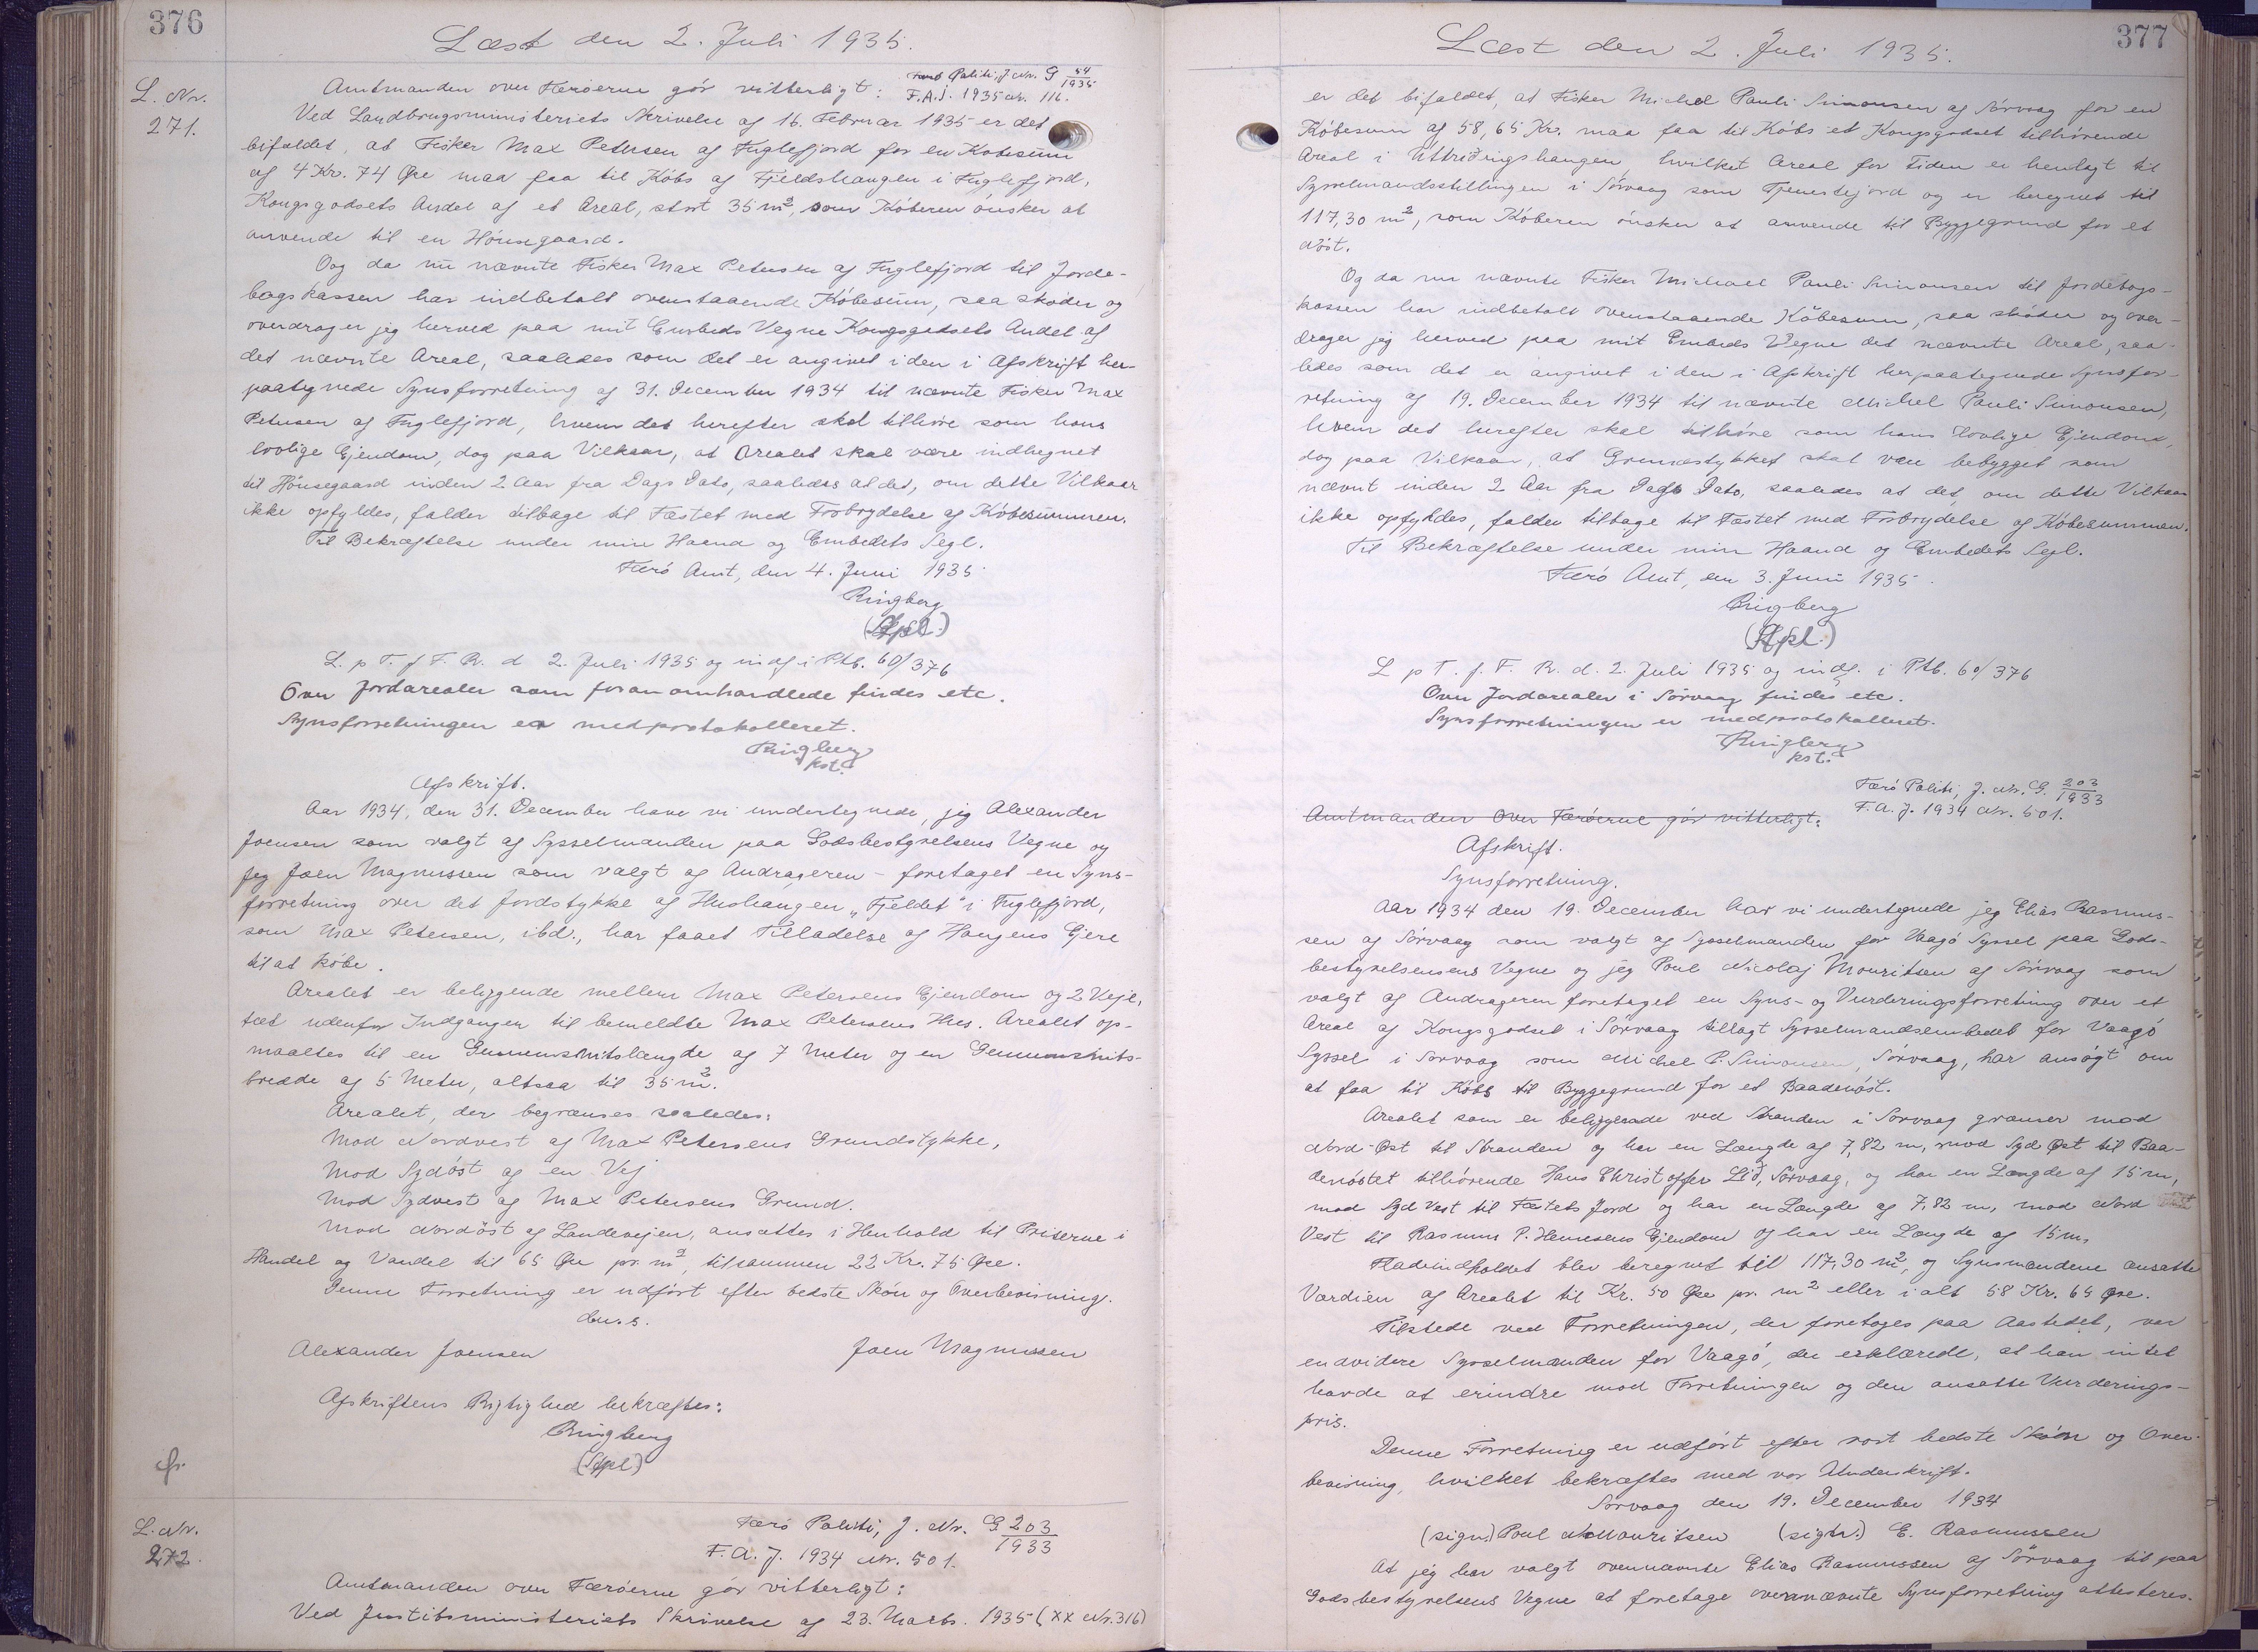 376
Læst den 2. Juli 1935.
L. Nr.
271.
Færö Politi, J. Nr. G 54/1935
F.A.J. 1935 Nr. 116.
Amtmanden over Færöerne gör vitterligt:
Ved Landbrugsministeriets Skrivelse af 16. Februar 1935 er det
bifaldet, at Fisker Max Petersen af Fuglefjord for en Købesum
af 4 Kr. 74 Øre maa faa til Köbs af Fjeldshaugen i Fuglefjord,
Kongsgodsets Andel af et Areal, stort 35 m², som Köberen önsker at
anvende til en Hönsegaard.
Og da nu nævnte Fisker Max Petersen af Fuglefjord til Jorde-
bogskassen har indbetalt ovenstaaende Köbesum, saa sköder og
overdrager jeg herved paa mit Embeds Vegne Kongsgodsets Andel af
det nævnte Areal, saaledes som det er angivet i den i Afskrift her-
paategnede Synsforretning af 31. December 1934 til nævnte Fisker Max
Petersen af Fuglefjord, hvem det herefter skal tilhöre som hans
lovlige Ejendom, dog paa Vilkaar, at Arealet skal være indhegnet
til Hönsegaard inden 2 Aar fra Dags Dato, saaledes at det, om dette Vilkaar
ikke opfyldes, falder tilbage til Fæstet med Fortrydelse af Köbesummen.
Til Bekræftelse under min Haand og Embedets Segl.
Færö Amt, den 4. Juni 1935
Ringberg
L. p T. f F. R. d 2. Juli 1935 og indf i Ptb. 60/376
Over Jordarealer som foran omhandlede findes etc.
Synsforretningen er medprotokolleret.
Ringberg
kst.
Afskrift.
Aar 1934, den 31. December have vi undertegnede, jeg Alexander
Joensen som valgt af Sysselmanden paa Godsbestyrelsens Vegne og
jeg Joen Magnussen som valgt af Andrageren - foretaget en Syns-
forretning over det Jordstykke af Hushaugen „Fjeldet" i Fuglefjord,
som Max Petersen, ibd., har faaet Tilladelse af Haugens Ejere
til at köbe.
Arealet er beliggende mellem Max Petersens Ejendom og 2 Veje,
tæt udenfor Indgangen til bemeldte Max Petersens Hus. Arealet op-
maaltes til en Gennemsnitslængde af 7 Meter og en Gennemsnits-
bredde af 5 Meter, altsaa til 35 m².
Arealet, der begrænses saaledes:
Mod Nordvest af Max Petersens Grundstykke,
Mod Sydöst af en Vej
Mod Sydvest af Max Petersens Grund.
Mod Nordöst af Landevejen, ansættes i Henhold til Priserne i
Handel og Vandel til 65 Øre pr. m², tilsammen 22 Kr. 75 Øre.
Denne Forretning er udfört efter bedste Skön og Overbevisning.
d.u.s.
Alexander Joensen Joen Magnussen
Afskriftens Rigtighed bekræftes:
Ringberg
L. Nr.
272.
Færö Politi, J. Nr. G 203/1933
F.A.J. 1934 Nr. 501.
Amtmanden over Færöerne gör vitterligt:
Ved Justitsministeriets Skrivelse af 23. Marts. 1935 (XX Nr. 316)
377
Læst den 2. Juli 1935.
er det bifaldet, at Fisker Michel Pauli Simonsen af Sörvaag for en
Köbesum af 58,65 Kr. maa faa til Köbs et Kongsgodset tilhörende
Areal i Úttriðingshaugen, hvilket Areal for Tiden er henlagt til
Sysselmandsstillingen i Sörvaag som Tjenestejord og er beregnet til
117,30 m², som Köberen önsker at anvende til Byggegrund for et
Nöst.
Og da nu nævnte Fisker Michael Pauli Simonsen til Jordebogs-
kassen har indbetalt ovenstaaende Köbesum, saa sköder og over-
drager jeg herved paa mit Embeds Vegne det nævnte Areal, saa-
ledes som det er angivet i den i Afskrift herpaategnede Synsfor-
retning af 19. December 1934 til nævnte Michel Pauli Simonsen,
hvem det herefter skal tilhöre som hans lovlige Ejendom,
dog paa Vilkaar, at Grundstykket skal være bebygget som
nævnt inden 2 Aar fra Dags Dato, saaledes at det, om dette Vilkaar
ikke opfyldes, falder tilbage til Fæstet med Fortrydelse af Köbesummen.
Til Bekræftelse under min Haand og Embedets Segl.
Færö Amt, den 3. Juni 1935.
Ringberg
L p T. f. F. R. d. 2. Juli 1935 og indf. i Ptb. 60/376
Over Jordarealer i Sörvaag findes etc.
Synsforretningen er medprotokolleret.
Ringberg
kst.
Færö Politi, J. Nr. G. 203/1933
F.A.J. 1934 Nr. 501.
Amtmanden over Færöerne gör vitterligt:
Afskrift.
Synsforretning.
Aar 1934 den 19. December har vi undertegnede jeg Elias Rasmus-
sen af Sörvaag som valgt af Sysselmanden for Vaagö Syssel paa Gods-
bestyrelsensens Vegne og jeg Poul Nicolaj Mouritsen af Sörvaag som
valgt af Andrageren foretaget en Syns- og Vurderingsforretning over et
Areal af Kongsgodset i Sörvaag tillagt Sysselmandsembedet for Vaagö
Syssel i Sörvaag som Michel P. Simonsen, Sörvaag, har ansögt om
at faa til Köbs til Byggegrund for et Baadenöst.
Arealet som er beliggende ved Stranden i Sörvaag grænser mod
Nord-Øst til Stranden og har en Længde af 7,82 m, mod Syd Øst til Baa-
denöstet tilhörende Hans Christoffer Lið, Sörvaag, og har en Længde af 15 m,
mod Syd Vest til Fæstets Jord og har en Længde af 7,82 m, mod Nord
Vest til Rasmus P. Henriksens Ejendom og har en Længde af 15 m.
Fladeindholdet blev beregnet til 117,30 m², og Synsmændene ansatte
Værdien af Arealet til Kr. 50 Øre pr. m² eller i alt 58 Kr. 65 Øre.
Tilstede ved Forretningen, der foretoges paa Aastedet, var
endvidere Sysselmanden for Vaagö, der erklærede, at han intet
havde at erindre mod Forretningen og den ansatte Vurderings-
pris.
Denne Forretning er udfört efter vort bedste Skön og Over-
bevisning, hvilket bekræftes med vor Underskrift.
Sörvaag den 19. December 1934
(sign.) Poul N Mouritsen (sign.) E. Rasmussen
At jeg har valgt ovennævnte Elias Rasmussen af Sörvaag til paa
Godsbestyrelsens Vegne at foretage ovennævnte Synsforretning attesteres.